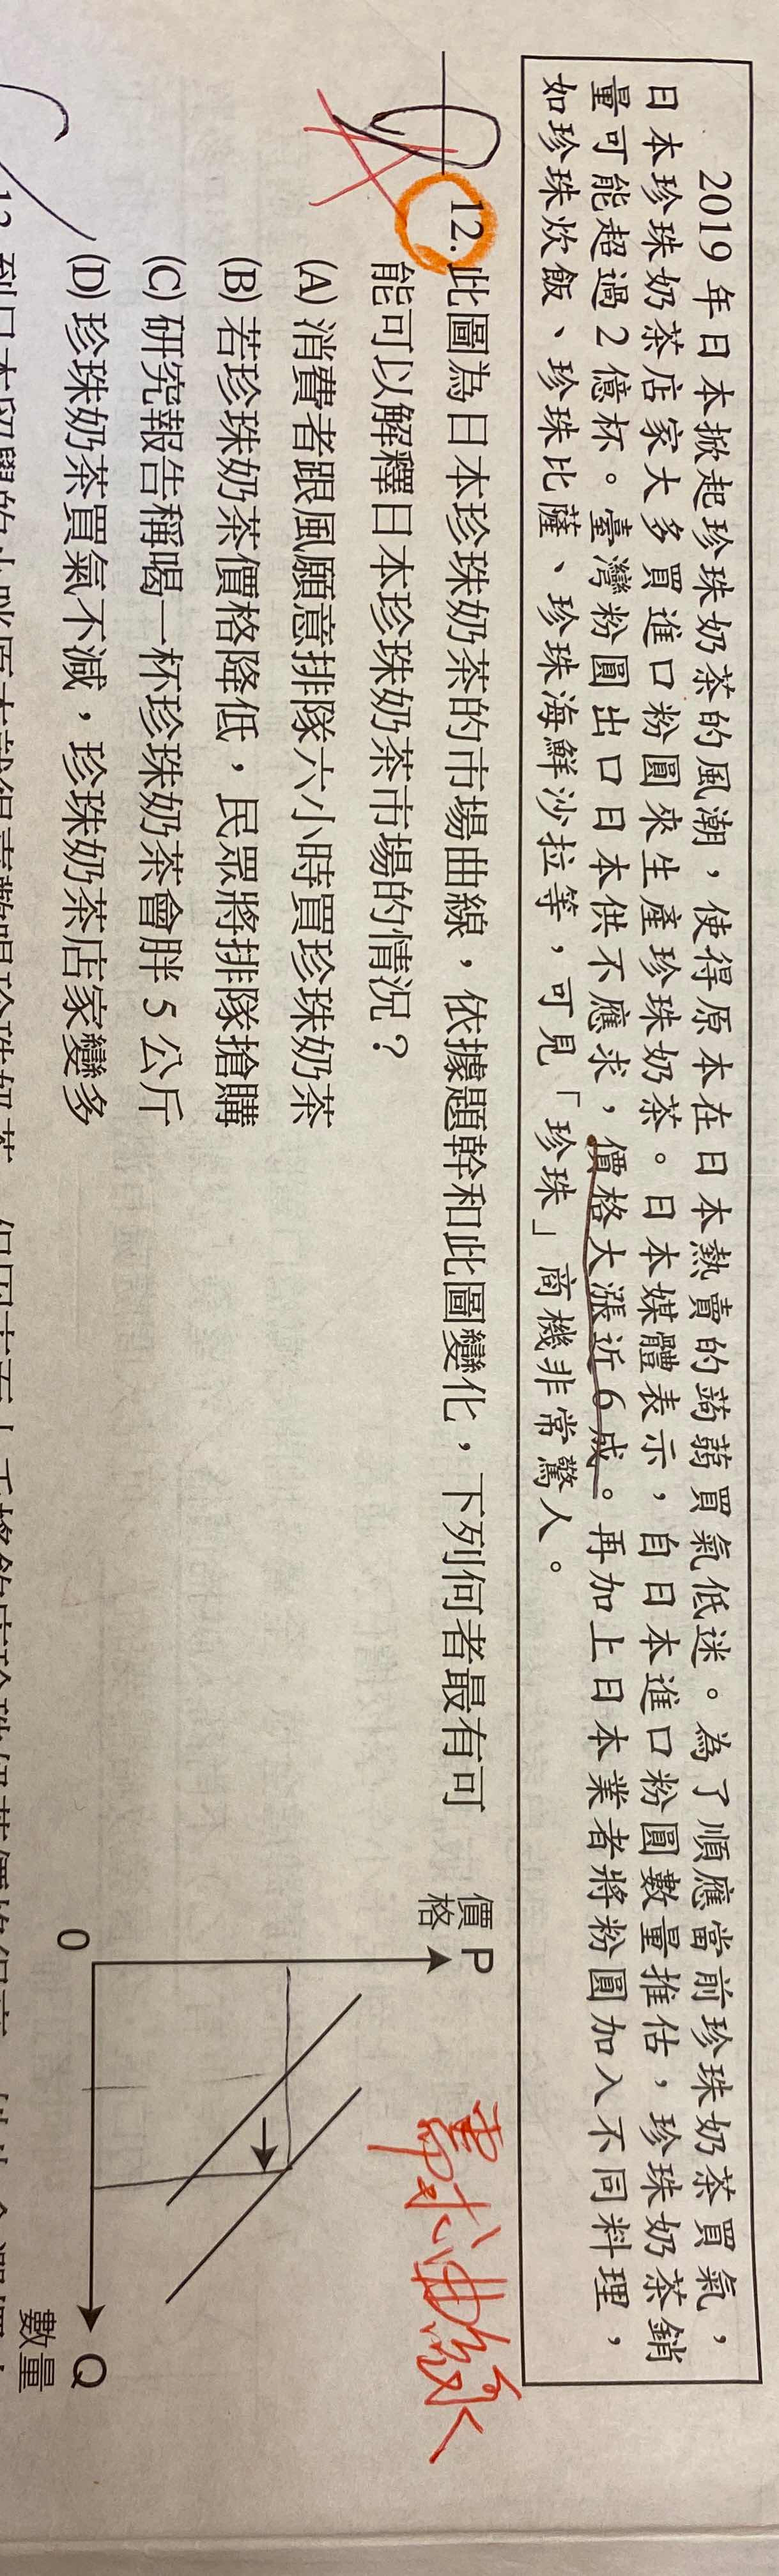 2019年日本掀起珍珠奶茶的風潮，使得原本在日本熱賣的蒟蒻買氣低迷。為了順應當前珍珠奶茶買氣，
日本珍珠奶茶店家大多買進口粉圓來生產珍珠奶茶。日本媒體表示，自日本進口粉圓數量推估，珍珠奶茶銷
量可能超過2億杯。臺灣粉圓出口日本供不應求，價格大漲近6成。再加上日本業者將粉圓加入不同料理，
如珍珠炊飯、珍珠比薩、珍珠海鮮沙拉等，可見「珍珠」商機非常驚人。
A
12. 此圖為日本珍珠奶茶的市場曲線，依據題幹和此圖變化，下列何者最有可
能可以解釋日本珍珠奶茶市場的情況？
(A) 消費者跟風願意排隊六小時買珍珠奶茶
(B) 若珍珠奶茶價格降低，民眾將排隊搶購
(C) 研究報告稱喝一杯珍珠奶茶會胖5公斤
(D) 珍珠奶茶買氣不減，珍珠奶茶店家變多
價格 P
0
Q
數量
需求曲線
C
13. 到日本留學的